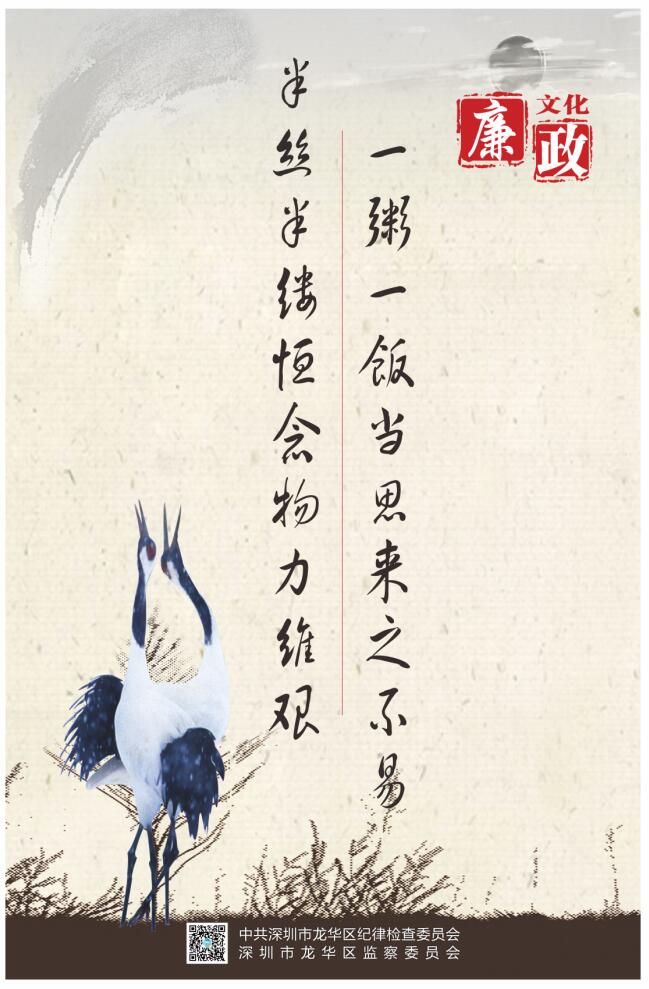 廉政
文化
一粥一饭当思来之不易
半丝半缕恒念物力维艰
中共深圳市龙华区纪律检查委员会
深圳市龙华区监察委员会